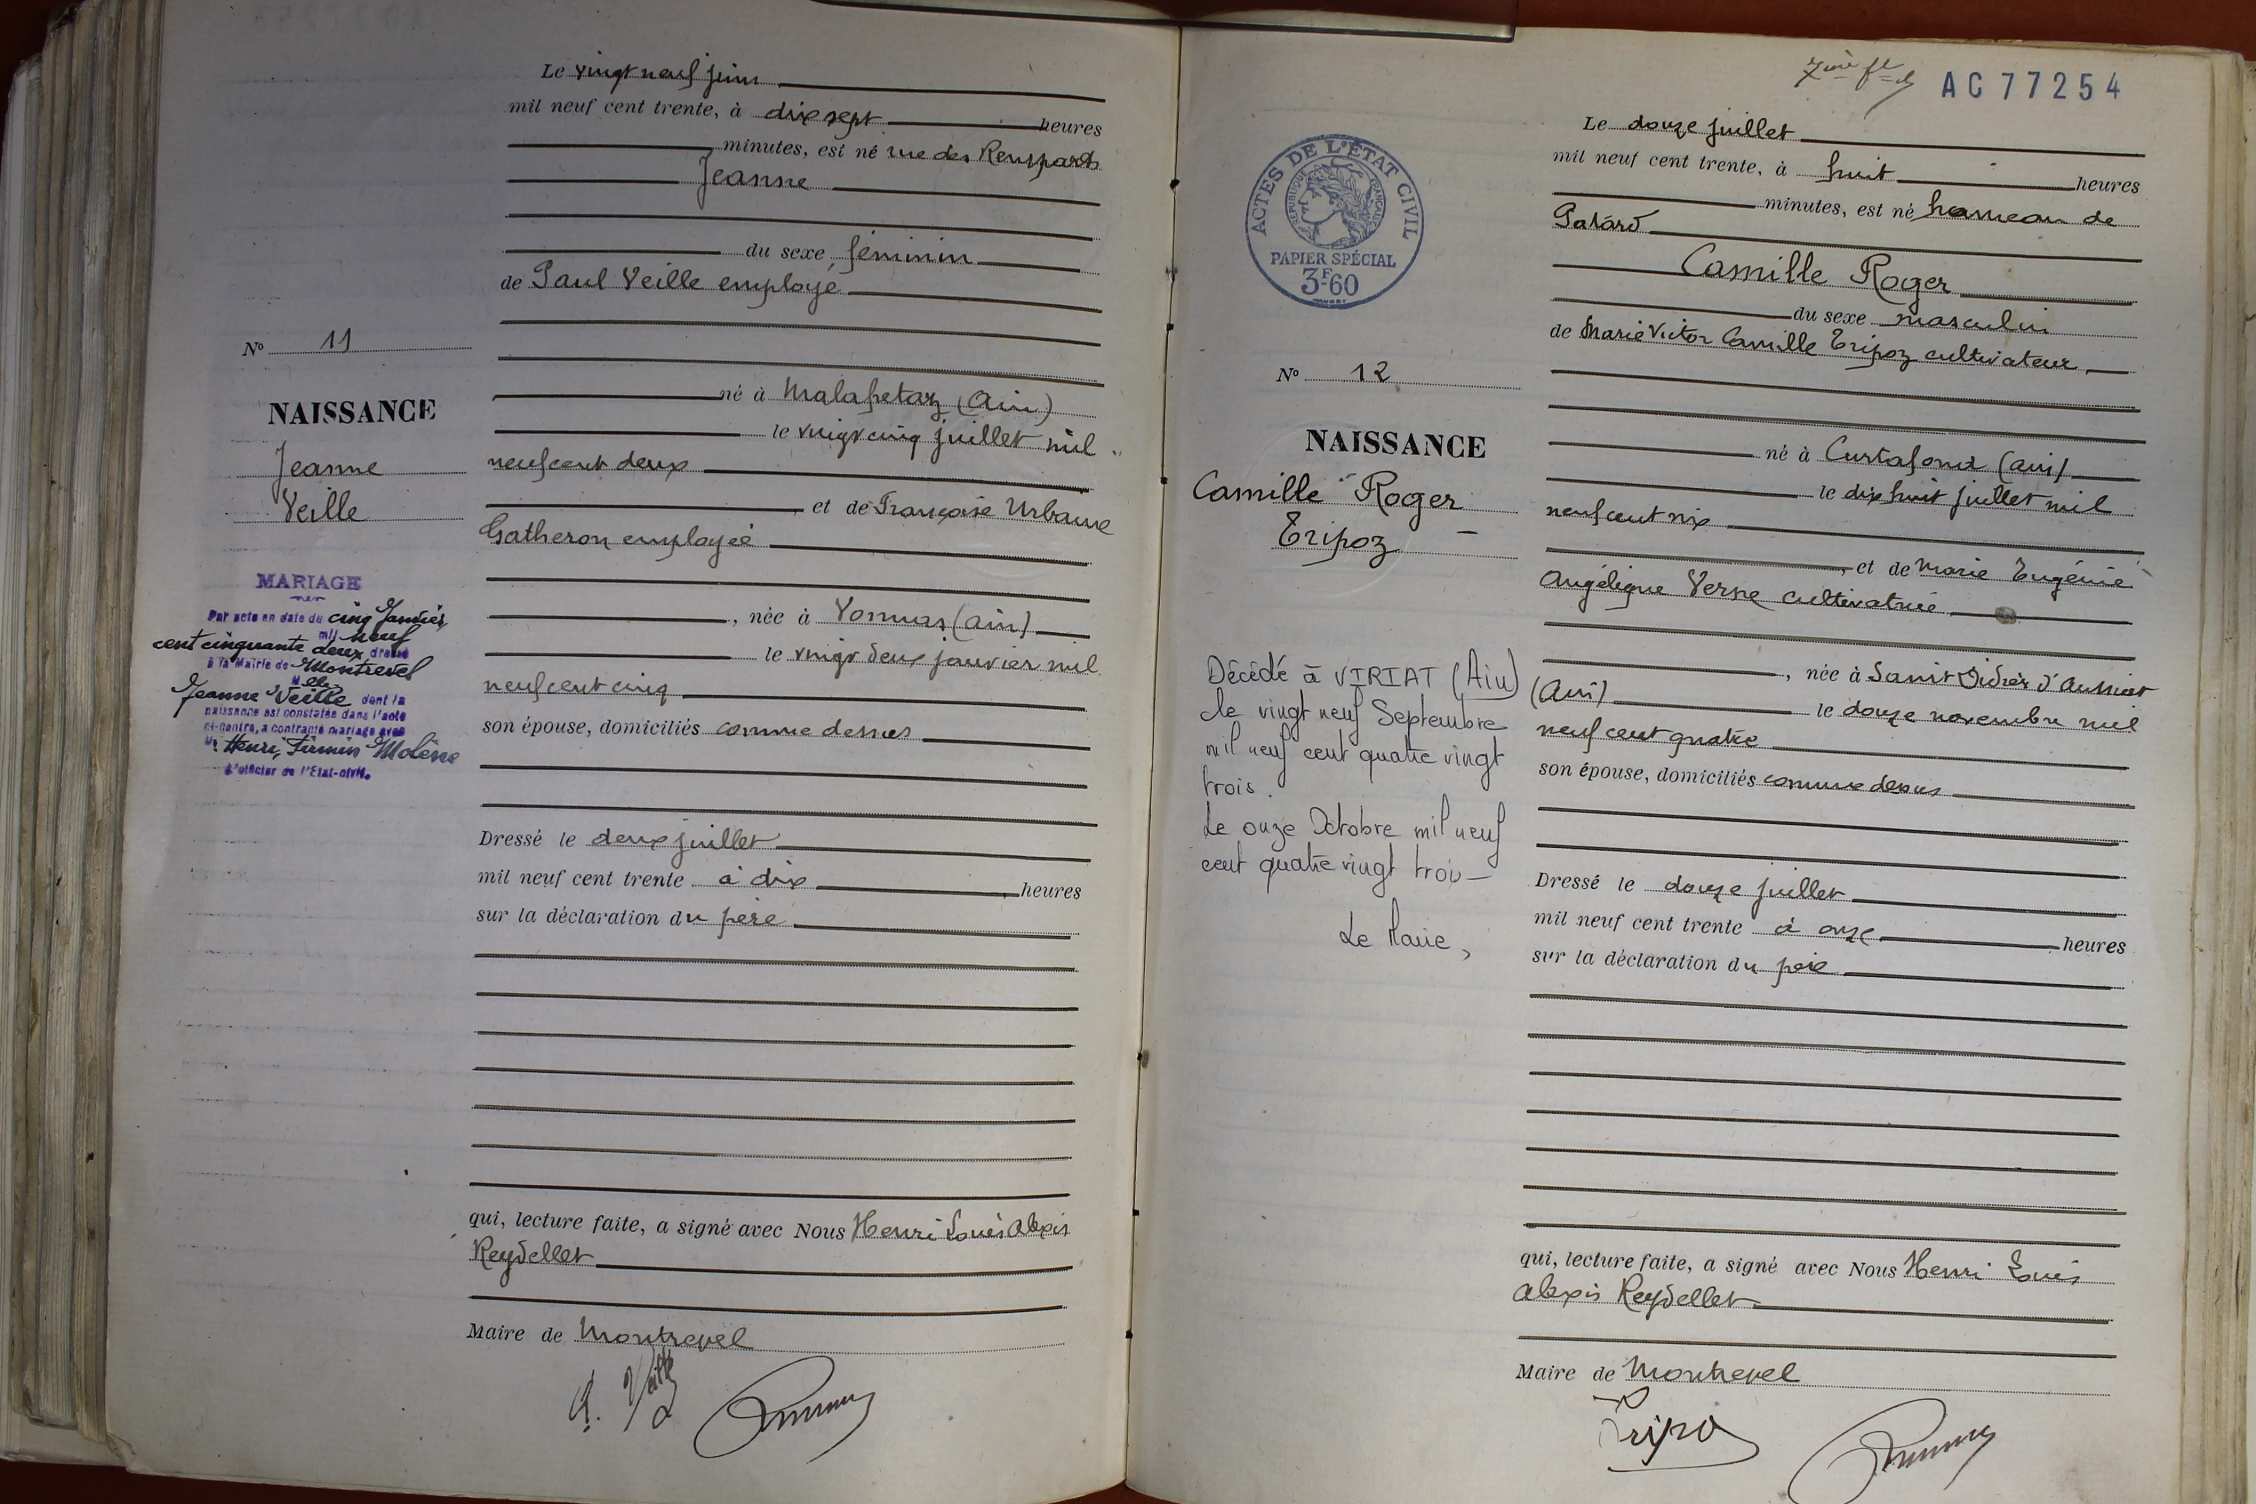 Le vingt neuf juin
mil neuf cent trente, à dix sept heures
minutes, est né rue des Remparts
Jeanne
du sexe féminin
de Paul Veille employé
né à Malafretaz (Ain)
le vingt cinq juillet mil
neuf cent deux
et de Françoise Urbaine
Gatheron employée
, née à Vonnas (ain)
le vingt deux janvier mil
neuf cent cinq
son épouse, domiciliés comme dessus
Dressé le deux juillet
mil neuf cent trente à dix heures
sur la déclaration du père
qui, lecture faite, a signé avec Nous Henri Louis Alexis
Reydellet
Maire de Montrevel
P. Veille
No 11
NAISSANCE
Jeanne
Veille
MARIAGE
Par acte en date du cinq Janvier
mil neuf
cent cinquante deux dressé
à la Mairie de Montrevel
Melle
Jeanne Veille dont la
naissance est constatée dans l'acte
ci-contre, a contracté mariage avec
Mr Henri, Firmin Molène
L'officier de l'Etat-civil.
7ème fl
AC 77254
ACTES DE L'ÉTAT CIVIL
RÉPUBLIQUE FRANÇAISE
PAPIER SPÉCIAL
3F60
Le douze juillet
mil neuf cent trente, à huit heures
minutes, est né hameau de
Camille Roger
du sexe masculin
de Marie Victor Camille Tripoz cultivateur
né à Curtafond (ain)
le dix huit juillet mil
neuf cent six
, et de Marie Eugénie
Angélique Verne cultivatrice
, née à Saint Didier d'Aussiat
(Ain) le douze novembre mil
neuf cent quatre
son épouse, domiciliés comme dessus
Dressé le douze juillet
mil neuf cent trente à onze heures
sur la déclaration du père
qui, lecture faite, a signé avec Nous Henri Louis
Alexis Reydellet
Maire de Montrevel
Tripoz
No 12
NAISSANCE
Camille Roger
Tripoz
Décédé à VIRIAT (Ain)
le vingt neuf Septembre
mil neuf cent quatre vingt
trois.
Le onze Octobre mil neuf
cent quatre vingt trois
Le Maire,